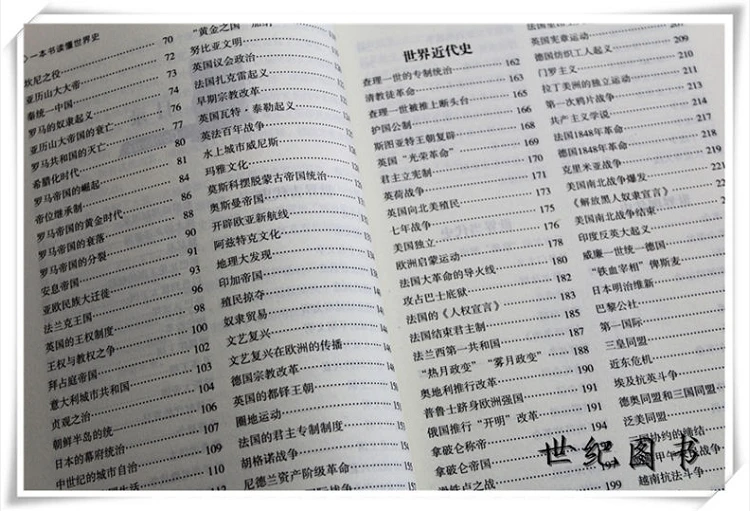 一本书读懂世界史
坎尼之役 70
亚历山大大帝 72
秦统一中国 73
罗马的奴隶起义 74
亚历山大帝国的衰亡 76
罗马共和国的灭亡 77
希腊化时代 80
罗马帝国的崛起 81
帝位继承制 84
罗马帝国的黄金时代 86
罗马帝国的衰落 88
罗马帝国的分裂 90
安息帝国 91
亚欧民族大迁徙 93
法兰克王国 96
英国的王权制度 98
王权与教权之争 100
拜占庭帝国 102
意大利城市共和国 103
贞观之治 104
朝鲜半岛的统一 106
日本的幕府统治 107
中世纪的城市自治 109
110
努比亚文明
英国议会政治
法国扎克雷起义
早期宗教改革
英国瓦特·泰勒起义
英法百年战争
水上城市威尼斯
玛雅文化
莫斯科摆脱蒙古帝国统治
奥斯曼帝国
开辟欧亚新航线
阿兹特克文化
地理大发现
印加帝国
殖民掠夺
奴隶贸易
文艺复兴
文艺复兴在欧洲的传播
德国宗教改革
英国的都铎王朝
圈地运动
法国的君主专制制度
胡格诺战争
尼德兰资产阶级革命
世界近代史
查理一世的专制统治 162
清教徒革命 163
查理一世被推上断头台 165
护国公制 166
斯图亚特王朝复辟 168
英国“光荣革命” 169
君主立宪制 170
英荷战争 171
英国向北美殖民 173
七年战争 175
美国独立 176
欧洲启蒙运动 178
法国大革命的导火线 180
攻占巴士底狱 182
法国的《人权宣言》 183
法国结束君主制 185
法兰西第一共和国 187
“热月政变”“雾月政变” 188
奥地利推行改革 190
普鲁士跻身欧洲强国 191
俄国推行“开明”改革 194
拿破仑称帝 194
拿破仑帝国
滑铁卢之战 199
英国宪章运动
德国纺织工人起义 209
门罗主义 210
拉丁美洲的独立运动 211
第一次鸦片战争 213
共产主义学说 214
法国1848年革命 217
德国1848年革命 218
克里米亚战争 219
美国南北战争爆发
《解放黑人奴隶宣言》
美国南北战争结束
印度反英大起义
威廉一世统一德国
“铁血宰相”俾斯麦
日本明治维新
巴黎公社
第一国际
三皇同盟
近东危机
埃及抗英斗争
德奥同盟和三国同盟
泛美同盟
越南抗法斗争
世纪图书